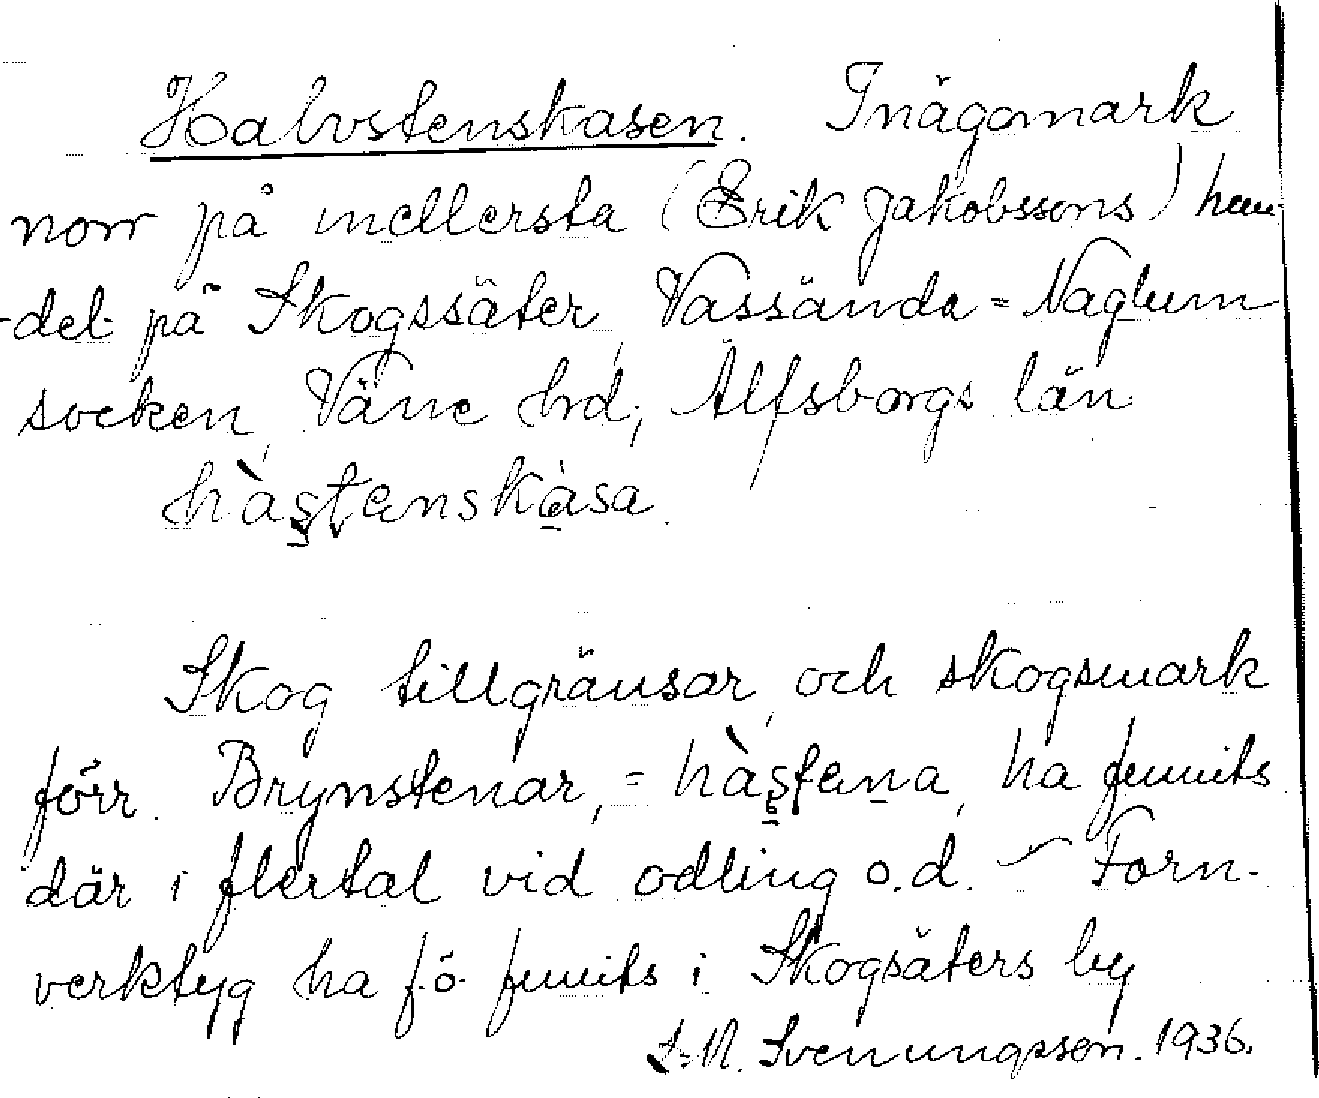 Halvstenskasen. Inägomark
norr på mellersta (Erik Jakobssons) hem-
-del på Skogssäter, Vassända=Naglum
socken, Väne hrd, Älfsborgs län
hàstenskàsa.
Skog tillgränsar, och skogsmark
förr. Brynstenar, = hàstena, ha funnits
där i flertal vid odling o.d. – Forn-
verktyg ha f.ö. funnits i Skogsäters by
Svenungsson. 1936.